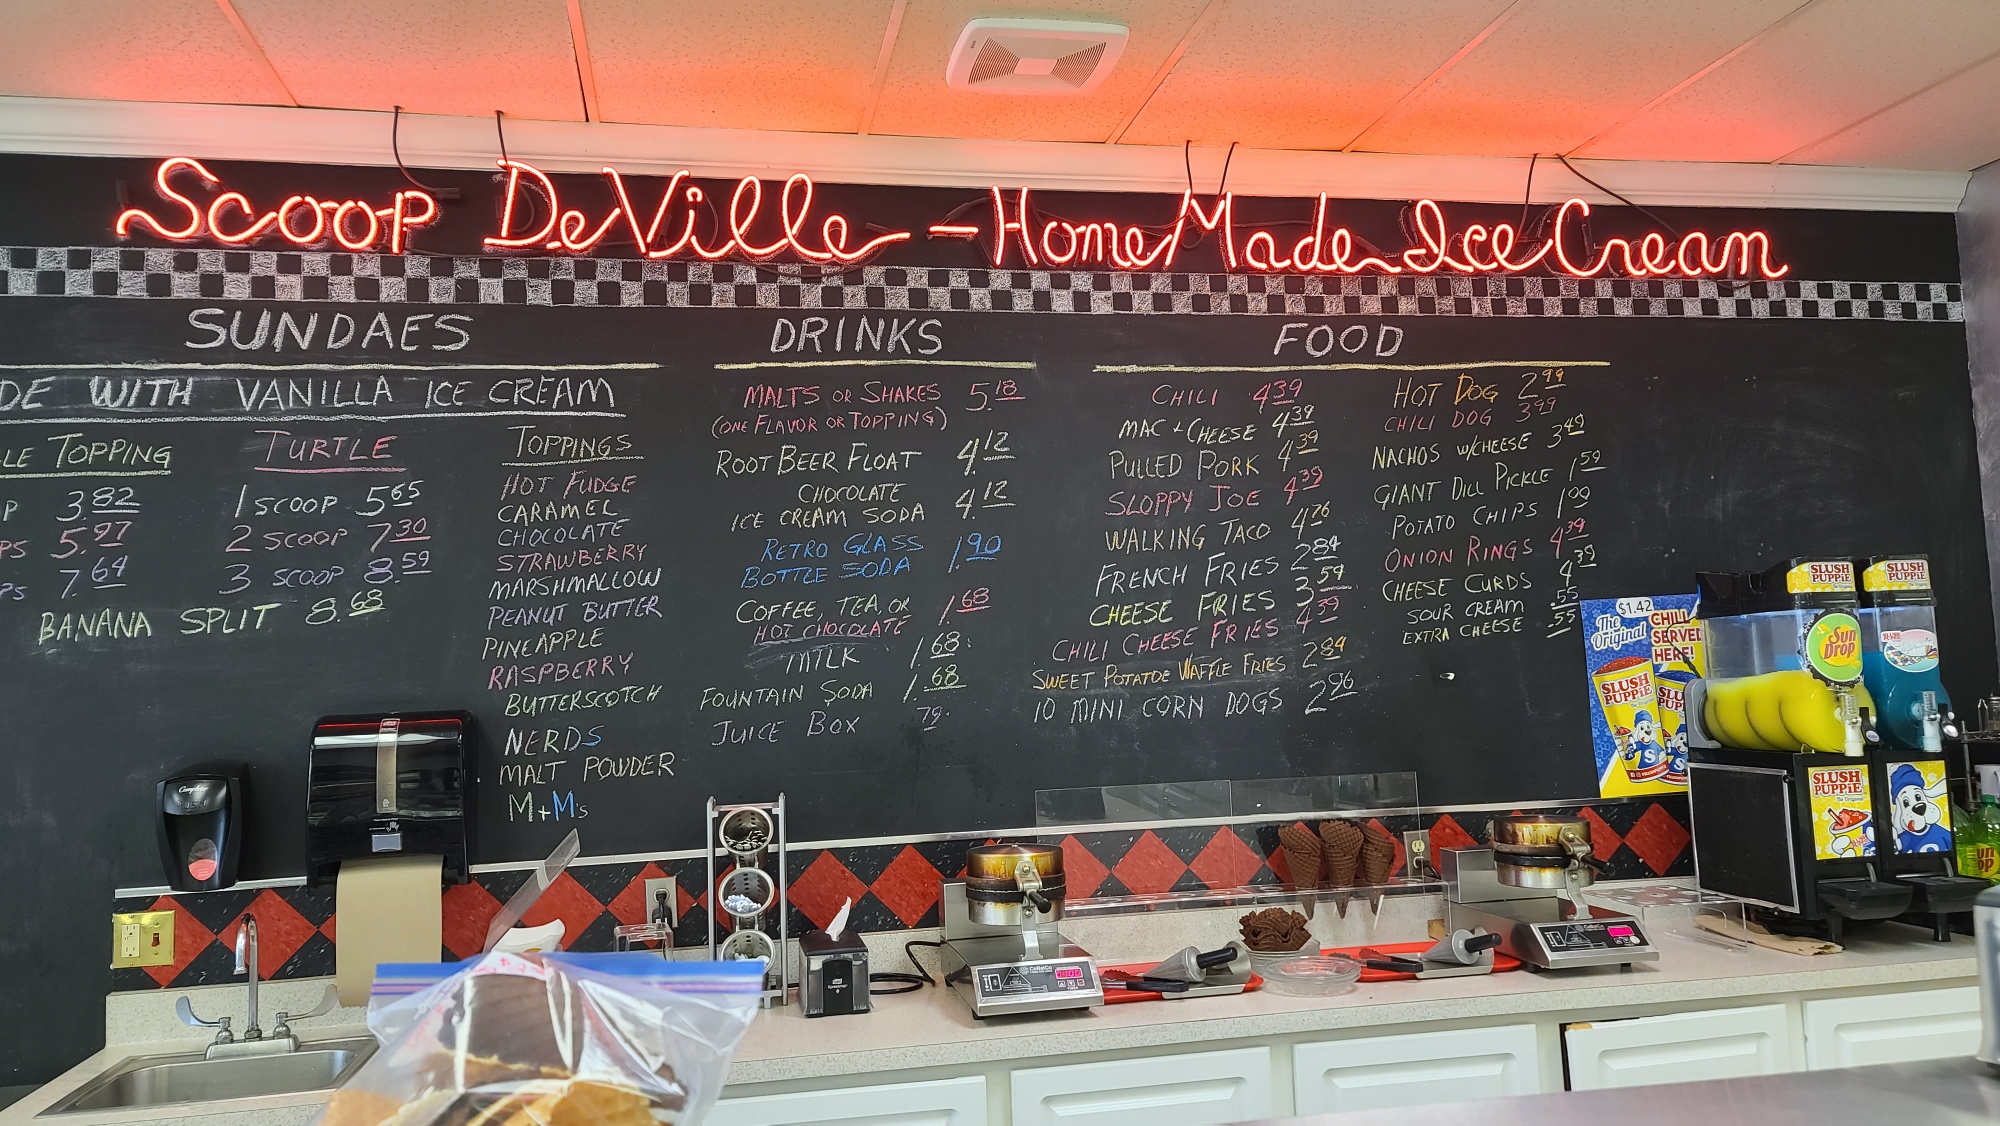 Scoop DeVille - HomeMade Ice Cream
SUNDAES
DE WITH VANILLA ICE CREAM
LE TOPPING
P 3.82
PS 5.97
PS 7.64
BANANA SPLIT 8.68
TURTLE
1 SCOOP 5.65
2 SCOOP 7.30
3 SCOOP 8.59
TOPPINGS
HOT FUDGE
CARAMEL
CHOCOLATE
STRAWBERRY
MARSHMALLOW
PEANUT BUTTER
PINEAPPLE
RASPBERRY
BUTTERSCOTCH
NERDS
MALT POWDER
M+M's
DRINKS
MALTS OR SHAKES 5.18
(ONE FLAVOR OR TOPPING)
ROOT BEER FLOAT 4.12
CHOCOLATE
ICE CREAM SODA 4.12
RETRO GLASS
BOTTLE SODA 1.90
COFFEE, TEA, OR
HOT CHOCOLATE 1.68
MILK 1.68
FOUNTAIN SODA 1.68
JUICE BOX .79
FOOD
CHILI 4.39
MAC + CHEESE 4.39
PULLED PORK 4.39
SLOPPY JOE 4.39
WALKING TACO 4.76
FRENCH FRIES 2.84
CHEESE FRIES 3.59
CHILI CHEESE FRIES 4.39
SWEET POTATOE WAFFLE FRIES 2.84
10 MINI CORN DOGS 2.96
HOT DOG 2.99
CHILI DOG 3.99
NACHOS W/CHEESE 3.49
GIANT DILL PICKLE 1.59
POTATO CHIPS 1.00
ONION RINGS 4.39
CHEESE CURDS 4.39
SOUR CREAM .55
EXTRA CHEESE .55
$1.42
The Original
CHILL
SERVED
HERE!
SLUSH
PUPPiE
SLUSH
PUP
SLUSH
PUPPiE
SLUSH
PUPPiE
Sun
Drop
SLUSH
PUPPiE
Complete